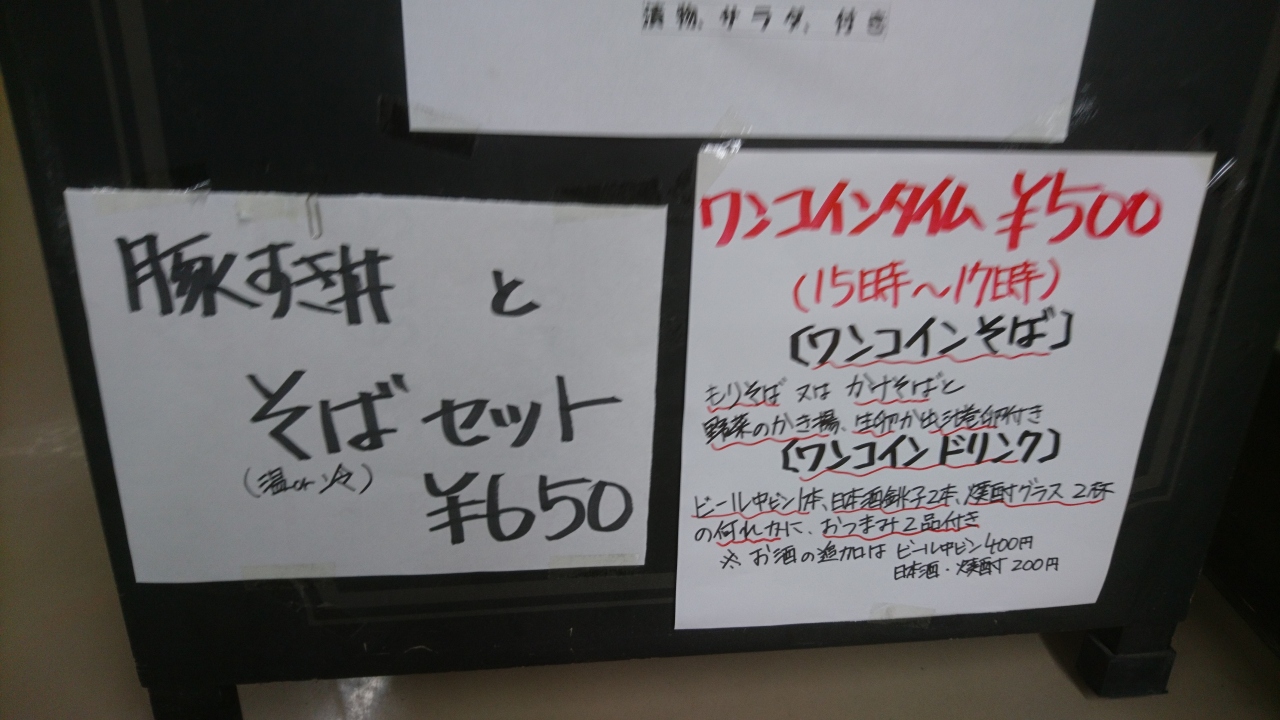 漬物、サラダ、付き
豚すき丼 と
そばセット
(温or冷)
¥650
ワンコインタイム ¥500
(15時〜17時)
〔ワンコインそば〕
もりそば 又は かけそばと
野菜のかき揚、生卵か出汁巻卵付き
〔ワンコインドリンク〕
ビール中ビン1本、日本酒銚子2本、焼酎グラス2杯
の何れかに、おつまみ2品付き
※ お酒の追加は ビール中ビン400円
日本酒・焼酎200円